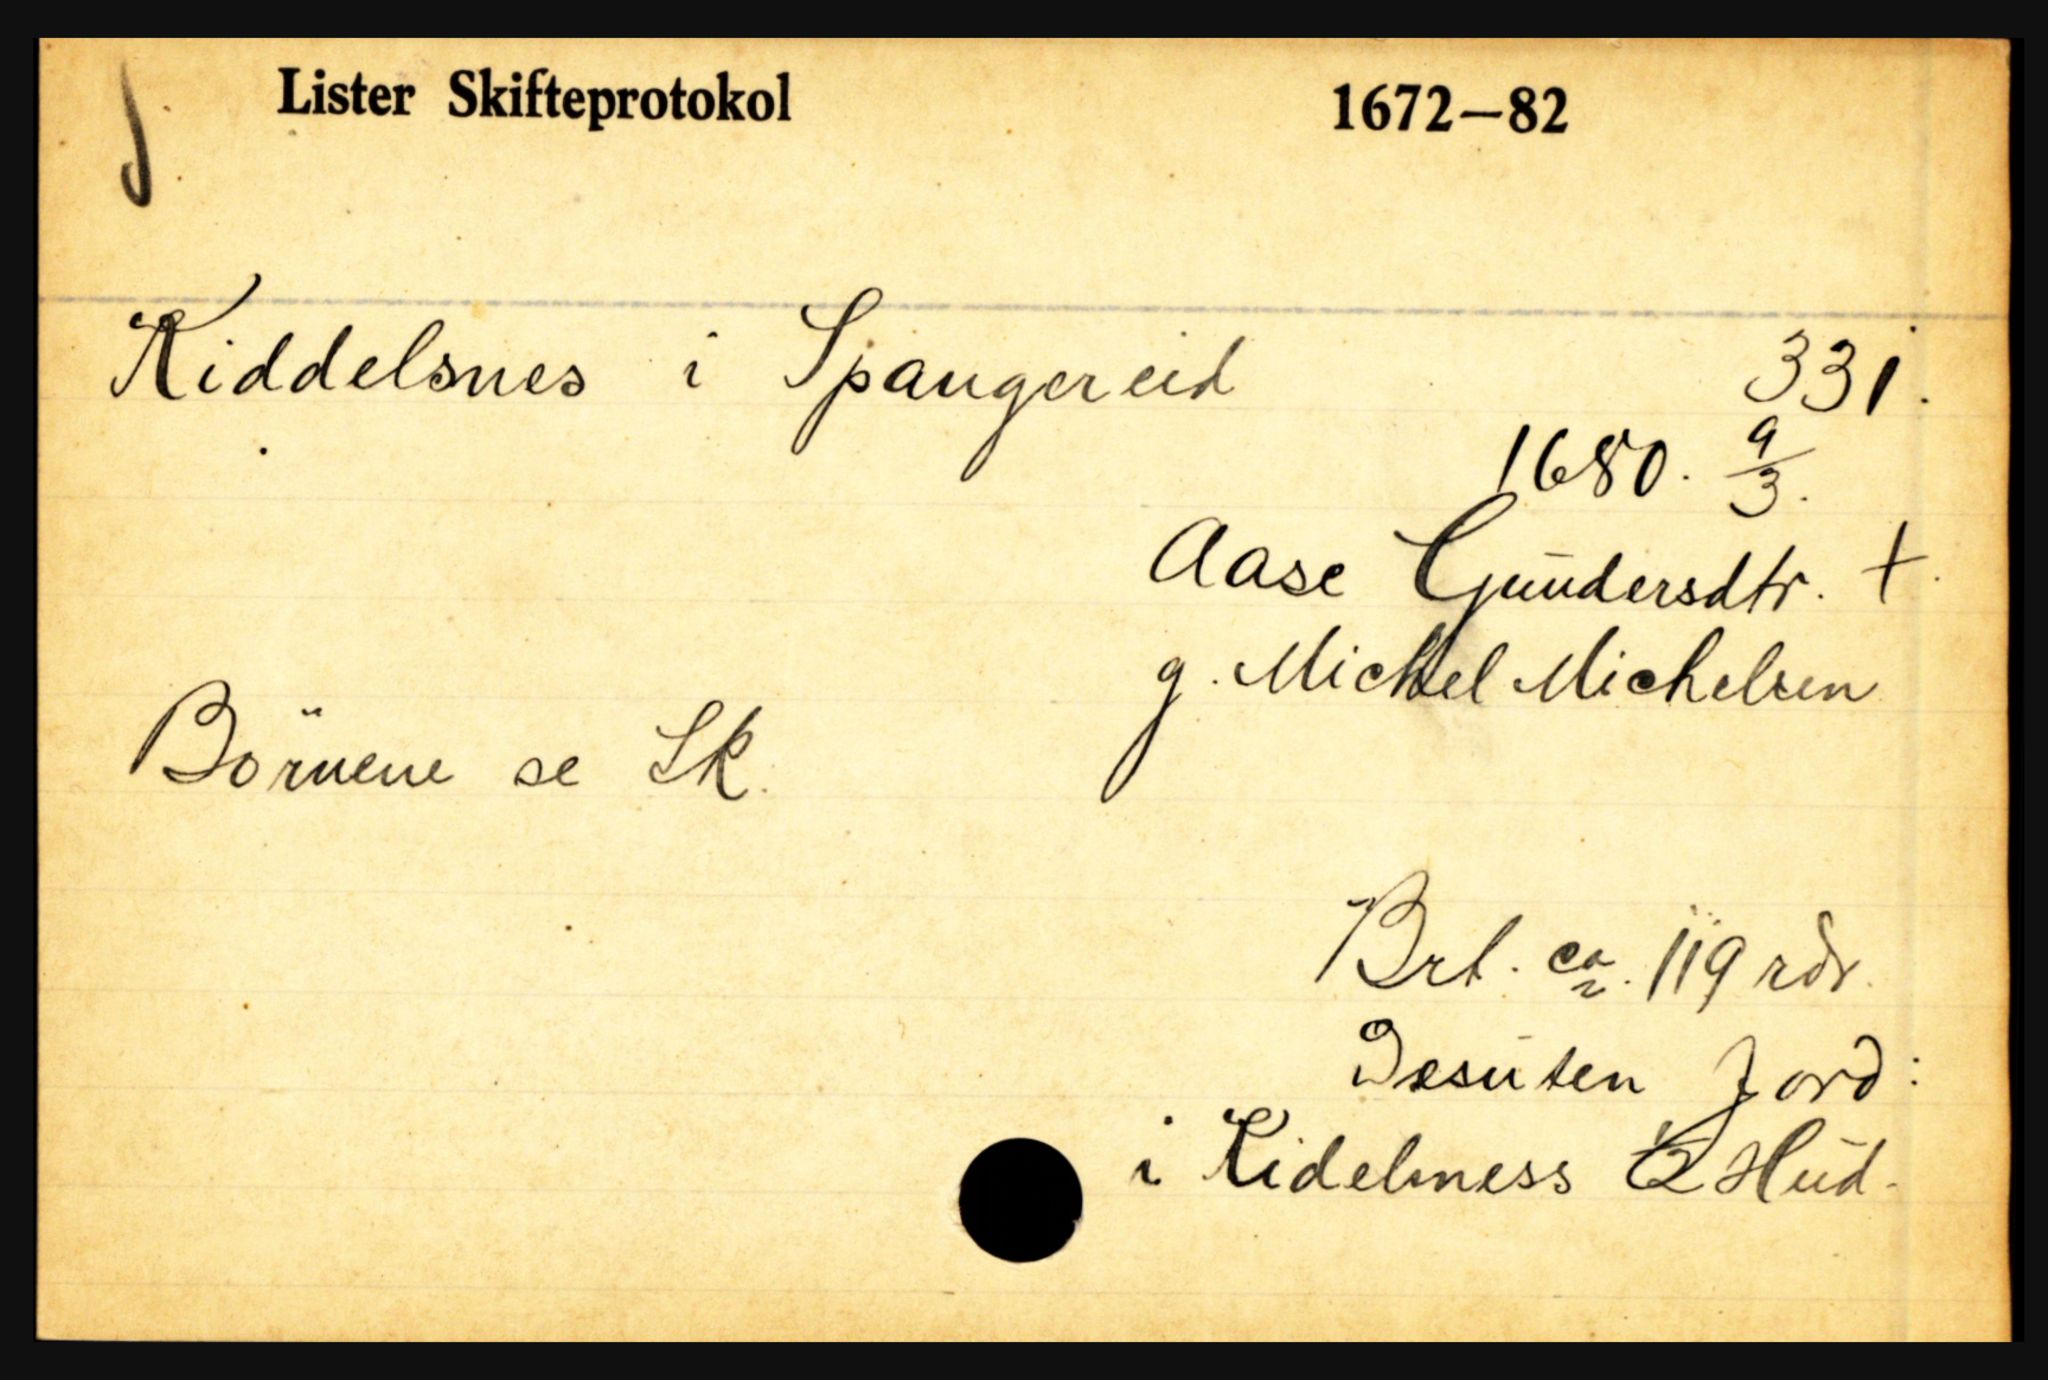 Lister Skifteprotokol 1672–82
Kiddelsnes i Spangereid 331.
1680. 9/3.
Aase Gundersdtr. +
g. Michel Michelsen
Börnene se Sk.
Brt. ca. 119 rdr.
Desuten Jord:
i Kidelsness 1/2 Hud.